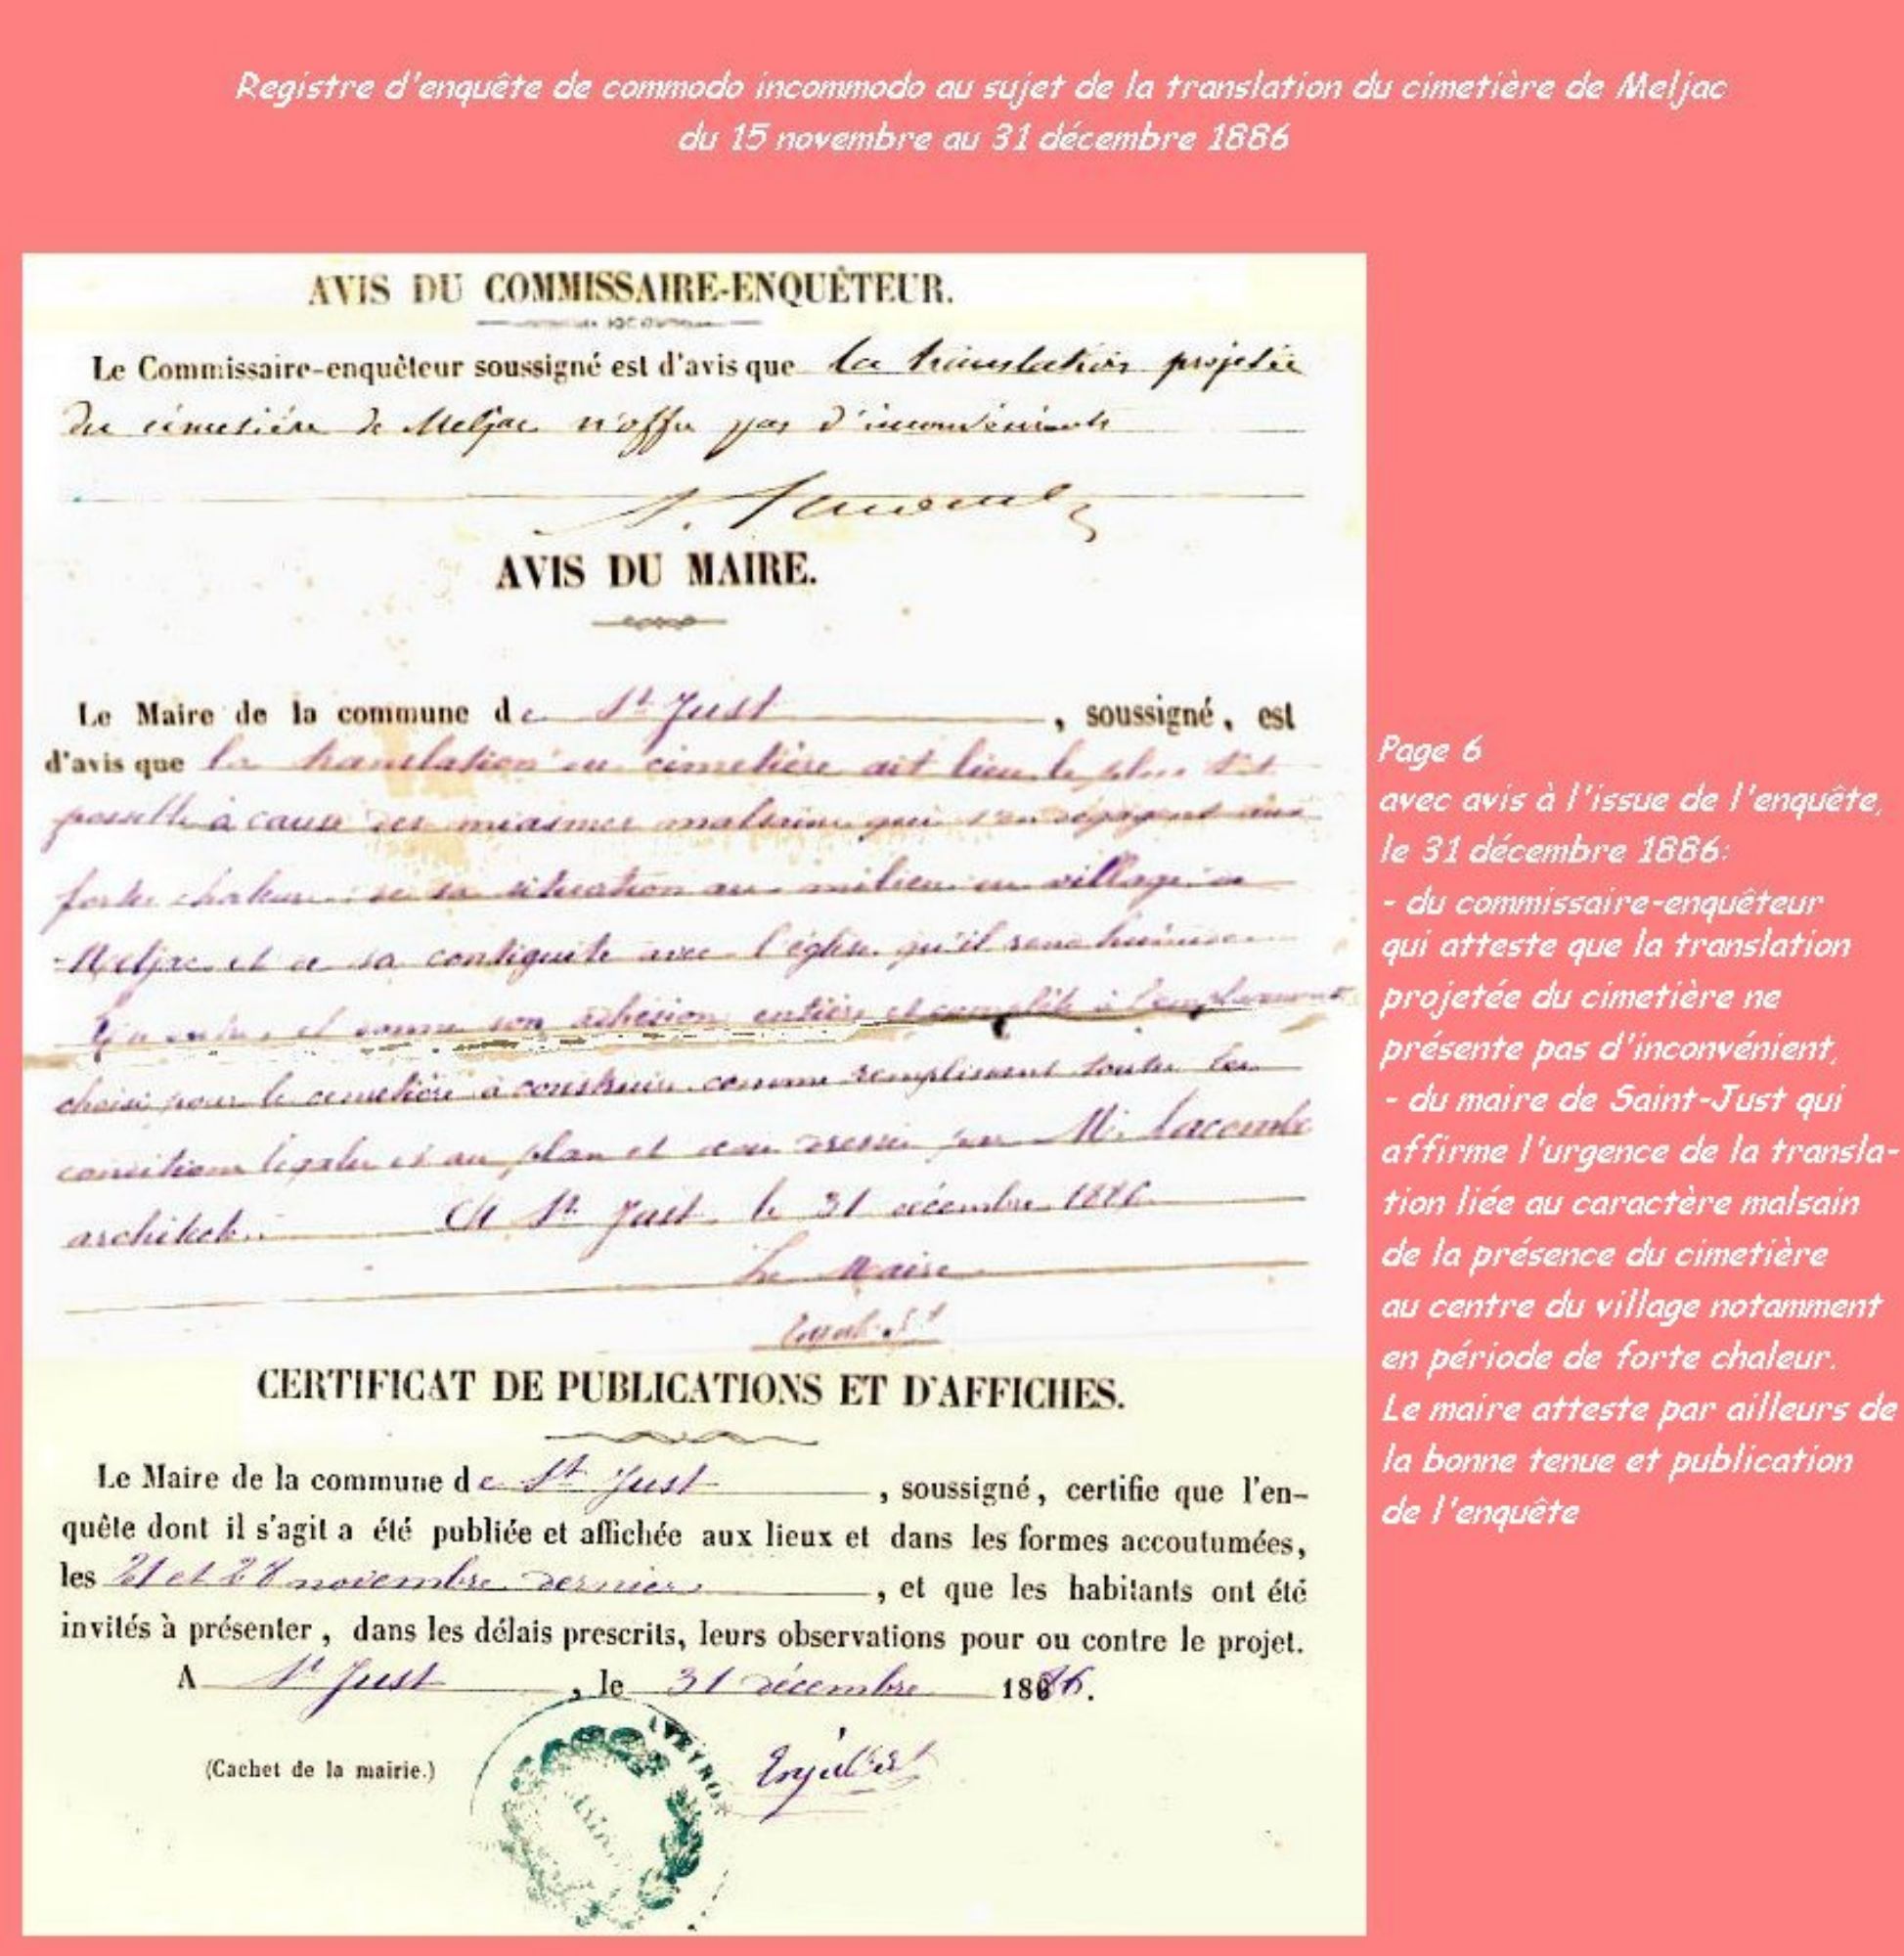 Registre d'enquête de commodo incommodo au sujet de la translation du cimetière de Meljac
du 15 novembre au 31 décembre 1886
AVIS DU COMMISSAIRE-ENQUÊTEUR.
Le Commissaire-enquêteur soussigné est d'avis que la translation projetée
du cimetière de Meljac n'offre pas d'inconvénients
AVIS DU MAIRE.
Le Maire de la commune de St Just , soussigné, est
d'avis que la translation du cimetière ait lieu le plus tôt
possible à cause des miasmes malsains qui s'en dégagent aux
fortes chaleurs de sa situation au milieu du village de
Meljac et de sa contiguité avec l'église qu'il rend humide
et donne son adhésion entière et complète à l'emplacement
choisi pour le cimetière à construire comme remplissant toutes les
conditions légales et au plan et devis dressés par M. Lacombe
architecte. A St Just, le 31 décembre 1886
Le Maire
CERTIFICAT DE PUBLICATIONS ET D'AFFICHES.
Le Maire de la commune de St Just , soussigné, certifie que l'en-
quête dont il s'agit a été publiée et affichée aux lieux et dans les formes accoutumées,
les 21 et 28 novembre dernier , et que les habitants ont été
invités à présenter, dans les délais prescrits, leurs observations pour ou contre le projet.
A St Just , le 31 décembre 1886.
(Cachet de la mairie.)
AVEYRON
Enjalbert
Page 6
avec avis à l'issue de l'enquête,
le 31 décembre 1886:
- du commissaire-enquêteur
qui atteste que la translation
projetée du cimetière ne
présente pas d'inconvénient,
- du maire de Saint-Just qui
affirme l'urgence de la transla-
tion liée au caractère malsain
de la présence du cimetière
au centre du village notamment
en période de forte chaleur.
Le maire atteste par ailleurs de
la bonne tenue et publication
de l'enquête